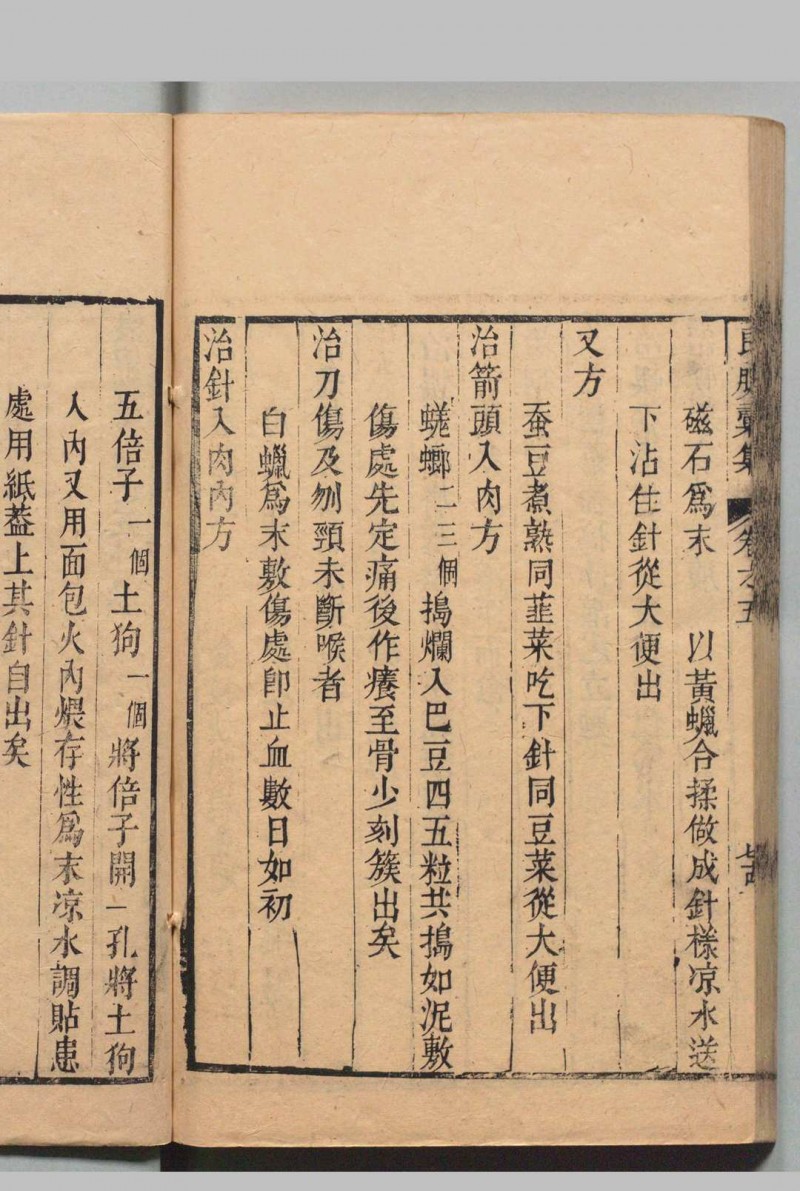 彙集 卷之五
磁石爲末 以黃蠟合揉做成針樣凉水送
下沾住針從大便出
又方
蚕豆煮熟同韮菜吃下針同豆菜從大便出
治箭頭入肉方
蜣螂二三個搗爛入巴豆四五粒共搗如泥敷
傷處先定痛後作癢至骨少刻簇出矣
治刀傷及刎頸未斷喉者
白蠟爲末敷傷處卽止血數日如初
治針入肉內方
五倍子一個土狗一個將倍子開一孔將土狗
入內又用面包火內煨存性爲末凉水調貼患
處用紙蓋上其針自出矣